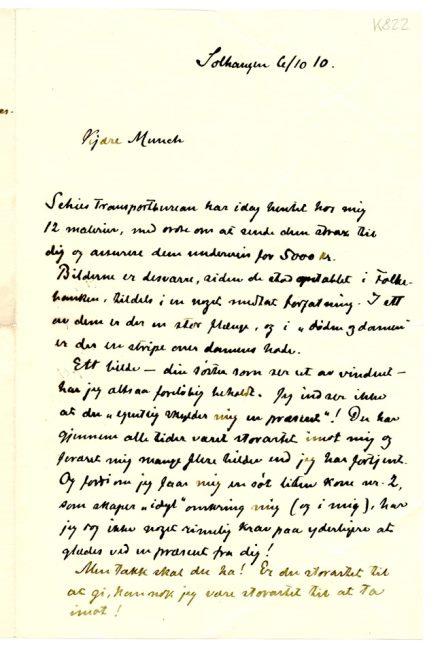 K822
Solhaugen 6/10 10.
es-
Kjære Munch
Schies Transportbureau har idag hentet hos mig
12 malerier, med ordre om at sende dem strax til
dig og assurere dem underveis for 5000 kr.
Bilderne er desværre, siden de stod opstablet i Folke-
banken, tildels i en noget medtat forfatning. I ett
av dem er der en stor flænge, og i „døden og damen"
er der en stripe over damens hode.
Ett bilde – din søster som ser ut av vinduet –
har jeg altsaa foreløbig beholdt. Jeg indser ikke
at du „egentlig skylder mig en præsent"! Du har
gjennem alle tider været storartet imot mig og
foræret mig mange flere bilder end jeg har fortjent.
Og fordi om jeg faar mig en søt liten kone nr. 2,
som skaper „idyl" omkring mig (og i mig), har
jeg dog ikke noget rimelig krav paa yderligere at
glædes ved en præsent fra dig!
Men takk skal du ha! Er du storartet til
at gi, kan nok jeg være storartet til at ta
imot!